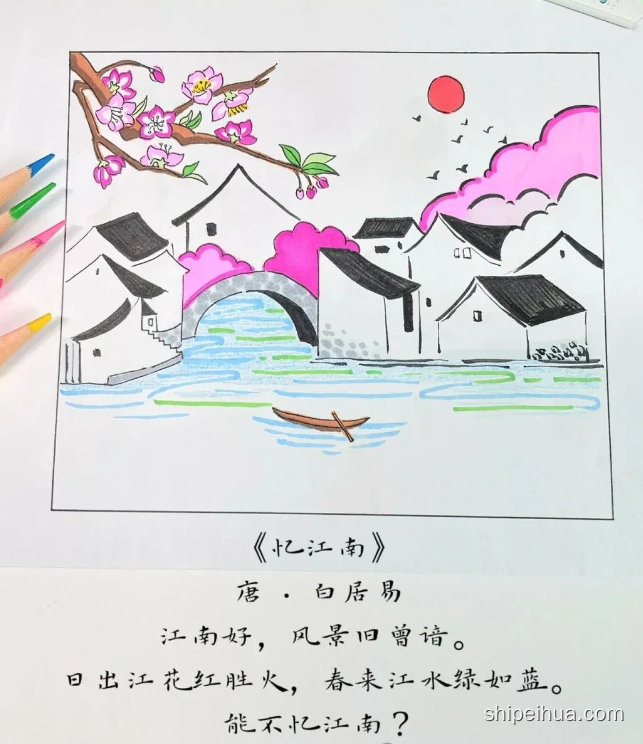 《忆江南》
唐·白居易
江南好，风景旧曾谙。
日出江花红胜火，春来江水绿如蓝。
能不忆江南？
shipeihua.com